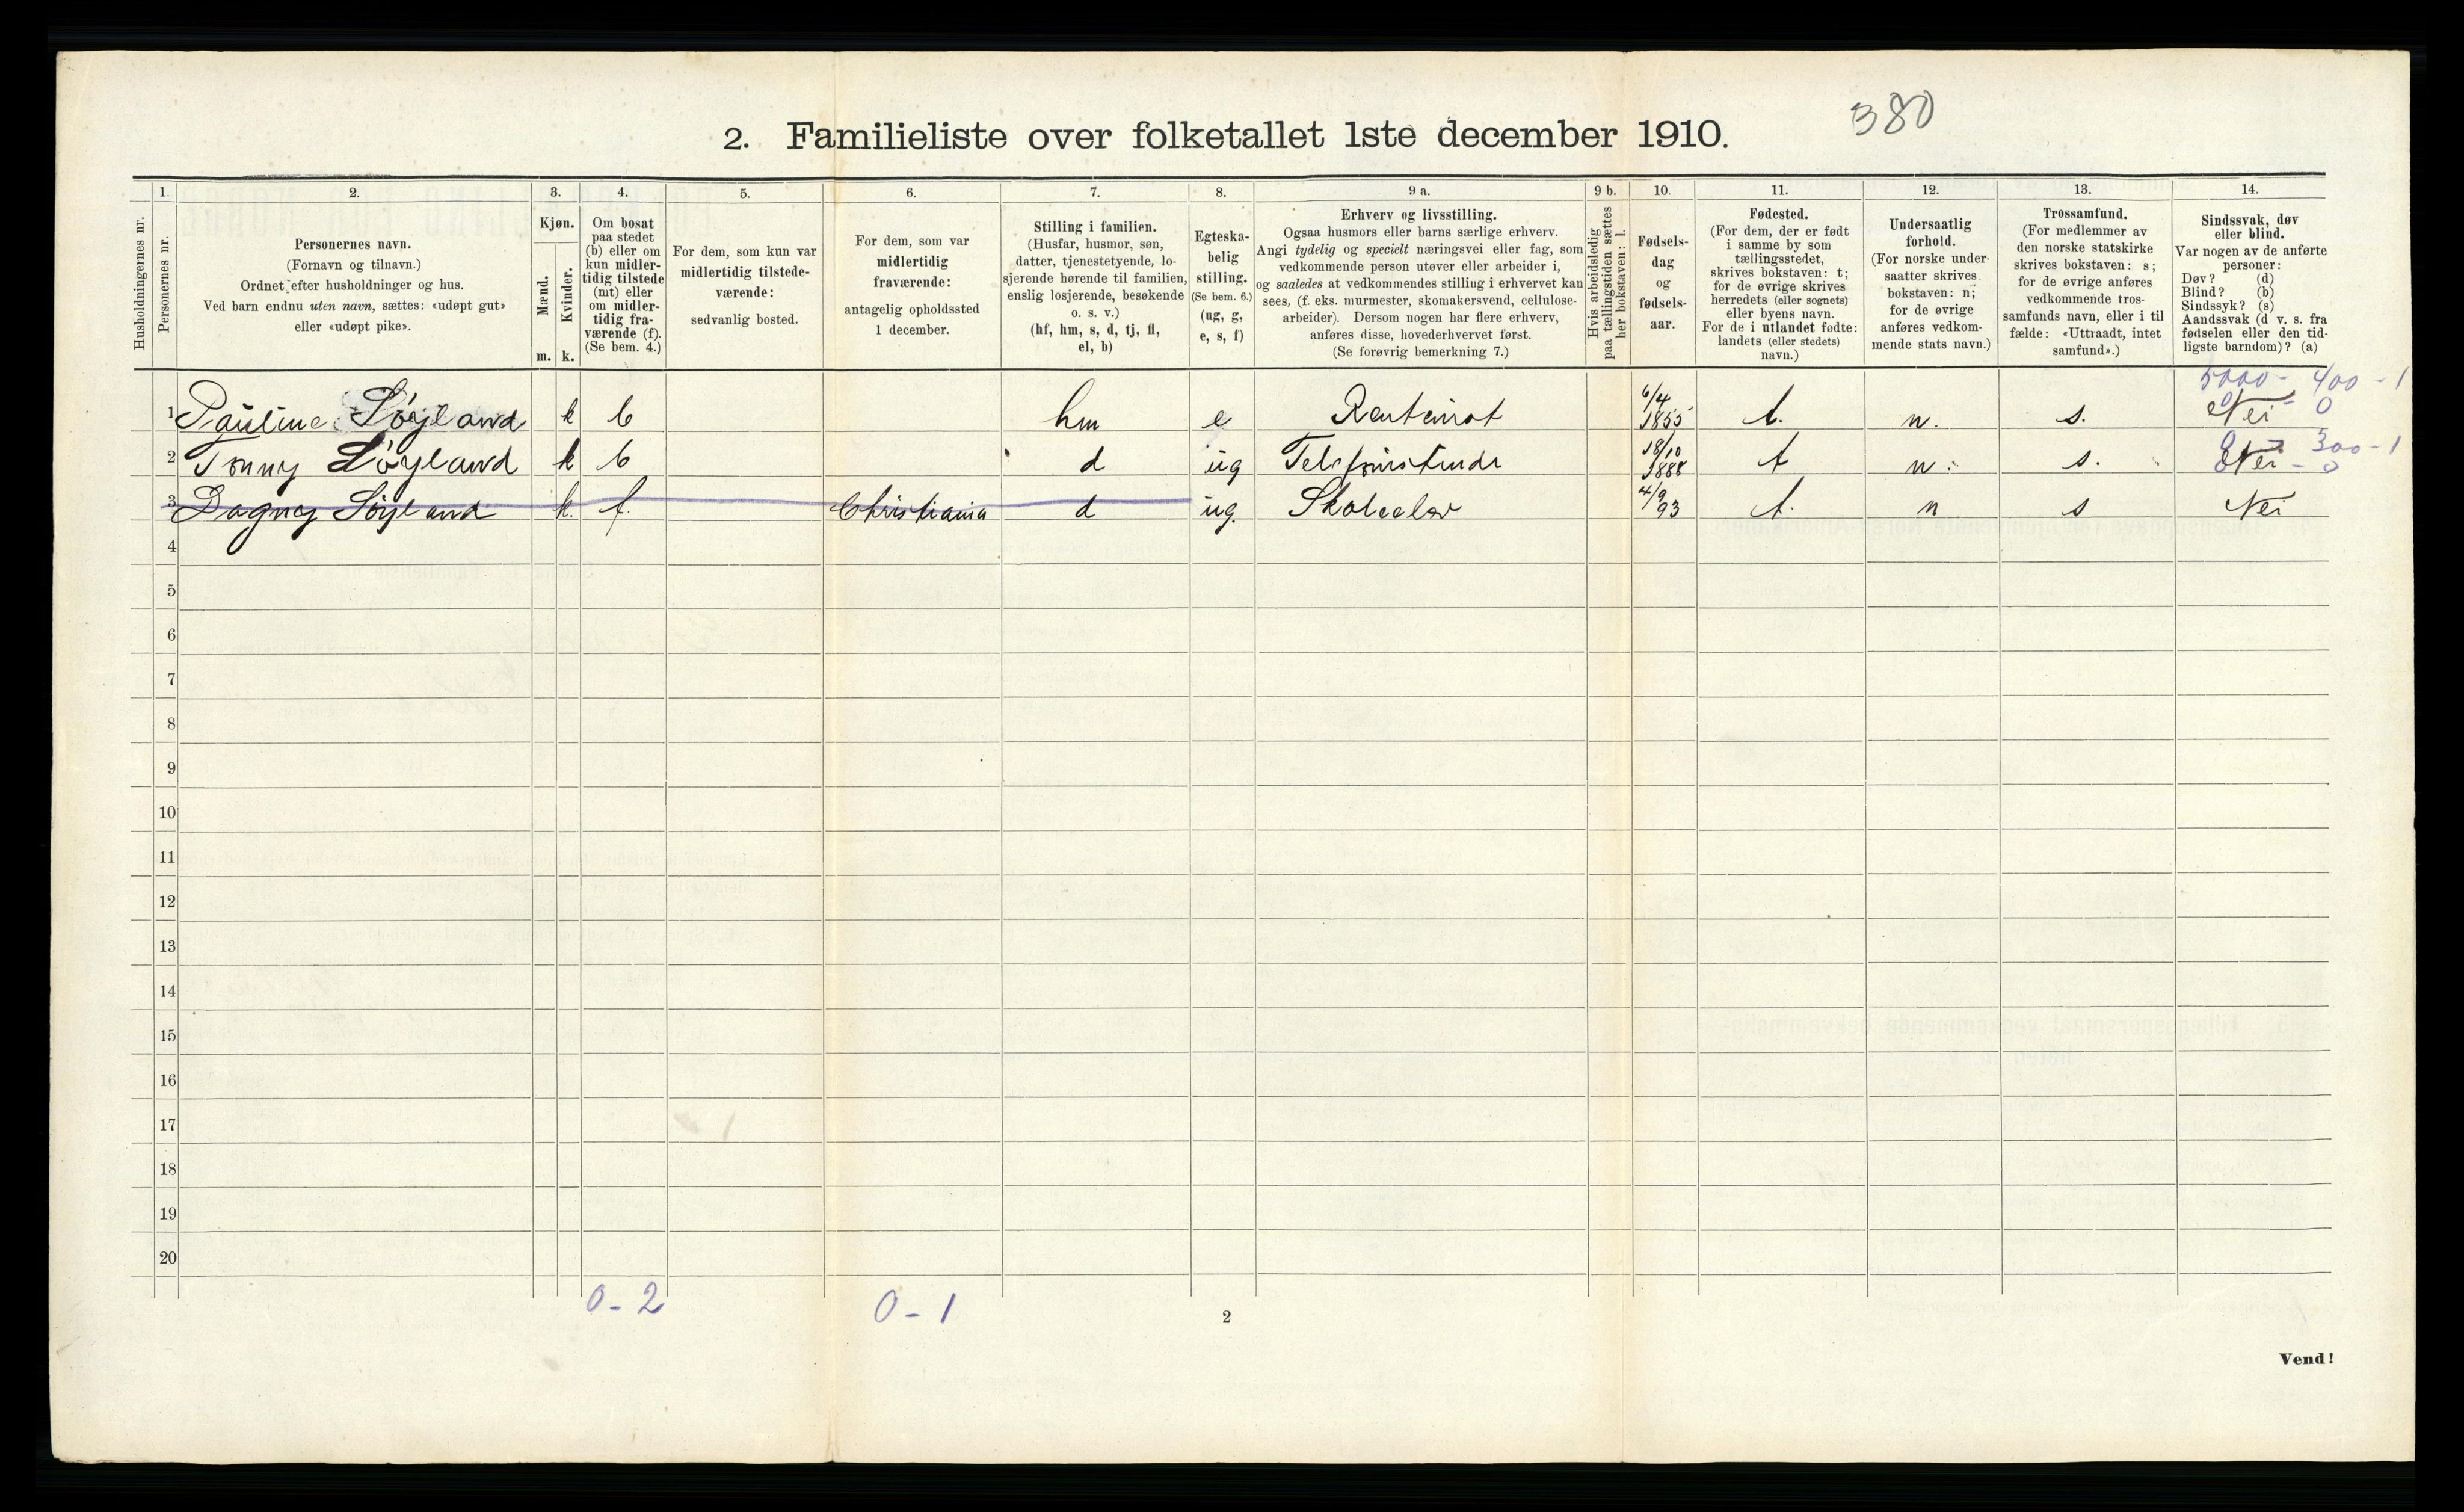 380
2. Familieliste over folketallet 1ste december 1910.
1. 2. 3. 4. 5. 6. 7. 8. 9 a. 9 b. 10. 11. 12. 13. 14.
Husholdningernes nr.
Personernes nr.
Personernes navn.
(Fornavn og tilnavn.)
Ordnet efter husholdninger og hus.
Ved barn endnu uten navn, sættes: «udøpt gut»
eller «udøpt pike».
Kjøn.
Mænd.
Kvinder.
m. k.
Om bosat
paa stedet
(b) eller om
kun midler-
tidig tilstede
(mt) eller
om midler-
tidig fra-
værende (f).
(Se bem. 4.)
For dem, som kun var
midlertidig tilstede-
værende:
sedvanlig bosted.
For dem, som var
midlertidig
fraværende:
antagelig opholdssted
1 december.
Stilling i familien.
(Husfar, husmor, søn,
datter, tjenestetyende, lo-
sjerende hørende til familien,
enslig losjerende, besøkende
o. s. v.)
(hf, hm, s, d, tj, fl,
el, b)
Egteska-
belig
stilling.
(Se bem. 6.)
(ug, g,
e, s, f)
Erhverv og livsstilling.
Ogsaa husmors eller barns særlige erhverv.
Angi tydelig og specielt næringsvei eller fag, som
vedkommende person utøver eller arbeider i,
og saaledes at vedkommendes stilling i erhvervet kan
sees, (f. eks. murmester, skomakersvend, cellulose-
arbeider). Dersom nogen har flere erhverv,
anføres disse, hovederhvervet først.
(Se forøvrig bemerkning 7.)
Hvis arbeidsledig
paa tællingstiden sættes
her bokstaven: l.
Fødsels-
dag
og
fødsels-
aar.
Fødested.
(For dem, der er født
i samme by som
tællingsstedet,
skrives bokstaven: t;
for de øvrige skrives
herredets (eller sognets)
eller byens navn.
For de i utlandet fødte:
landets (eller stedets)
navn.)
Undersaatlig
forhold.
(For norske under-
saatter skrives
bokstaven: n;
for de øvrige
anføres vedkom-
mende stats navn.)
Trossamfund.
(For medlemmer av
den norske statskirke
skrives bokstaven: s;
for de øvrige anføres
vedkommende tros-
samfunds navn, eller i til
fælde: «Uttraadt, intet
samfund».)
Sindssvak, døv
eller blind.
Var nogen av de anførte
personer:
Døv? (d)
Blind? (b)
Sindssyk? (s)
Aandssvak (d. v. s. fra
fødselen eller den tid-
ligste barndom)? (a)
5000 - 400 - 1
1 Pauline Løyland k b hm e Rentenist 6/4 1855 t. n. s. Nei 0
300 - 1
2 Tonny Løyland k b d ug Telefonistinde 18/10 1888 t n. s. Nei - 0
3 Dagny Løyland k. f. Christiania d ug. Skoleelev 4/9 93 t. n s Nei
4
5
6
7
8
9
10
11
12
13
14
15
16
17
18
19
20
0 - 2 0 - 1
2
Vend!